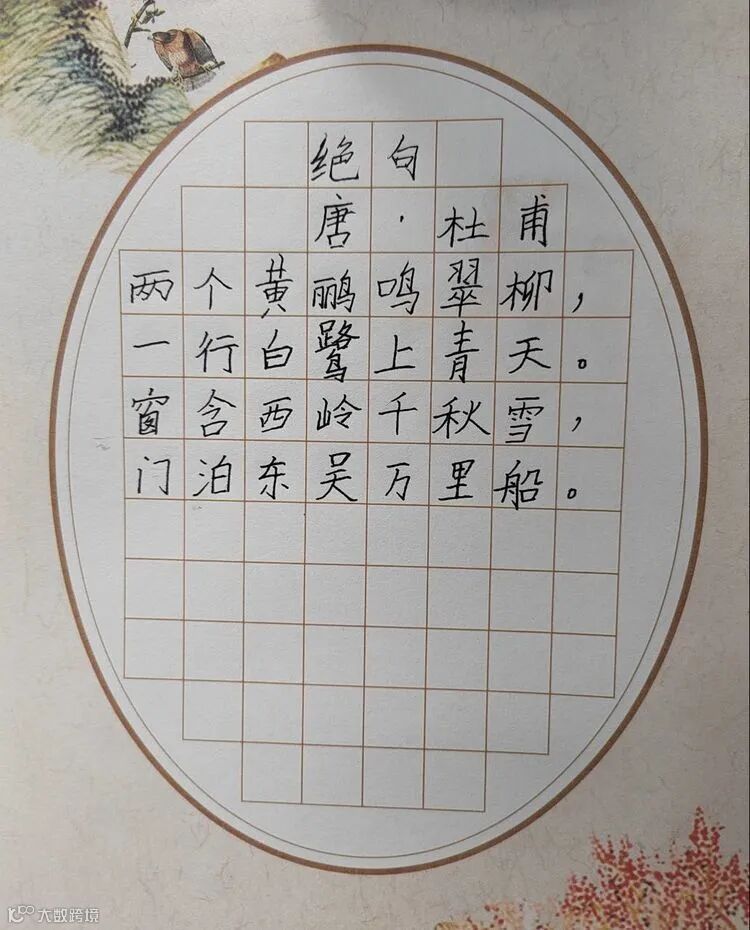 绝句
唐·杜甫
两个黄鹂鸣翠柳，
一行白鹭上青天。
窗含西岭千秋雪，
门泊东吴万里船。
大数跨境